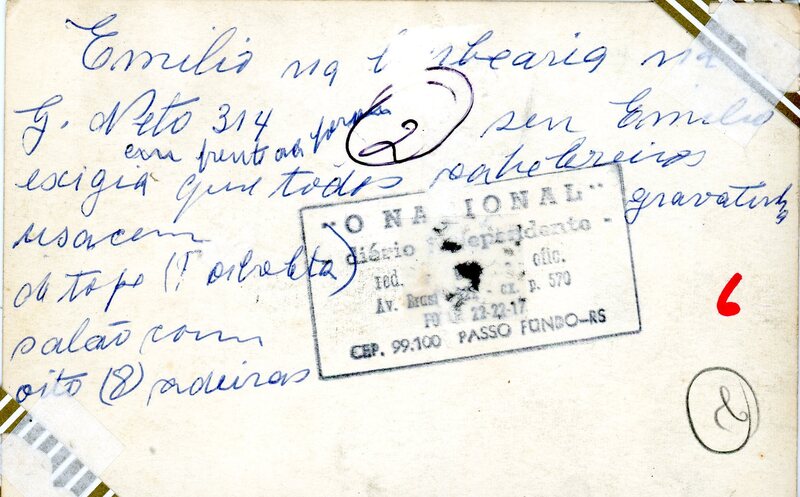 Emilio na barbearia na
G. Neto 314
em frente ao
2
seu Emilio
exigia que todos
usacem
gravatinha
de tope (
salão com
oito (8) cadeiras
"O NACIONAL"
diário independente -
red. ofic.
Av. Brasil cx. p. 570
22-22-17
CEP. 99.100 PASSO FUNDO-RS
6
8